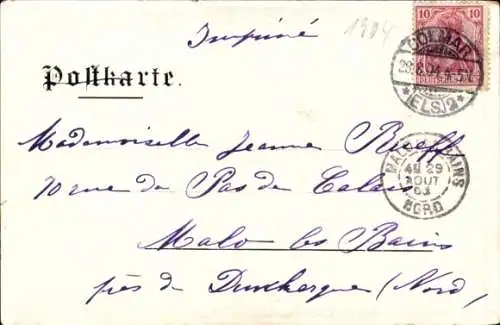 Imprimé
1904
10 10
COLMAR
Postkarte.
*(ELS.)2*
Mademoiselle Jeanne Rueff
MALO BAINS
29
AOUT
NORD
70 rue du Pas de Calais
Malo les Bains
près de Dunkerque (Nord)